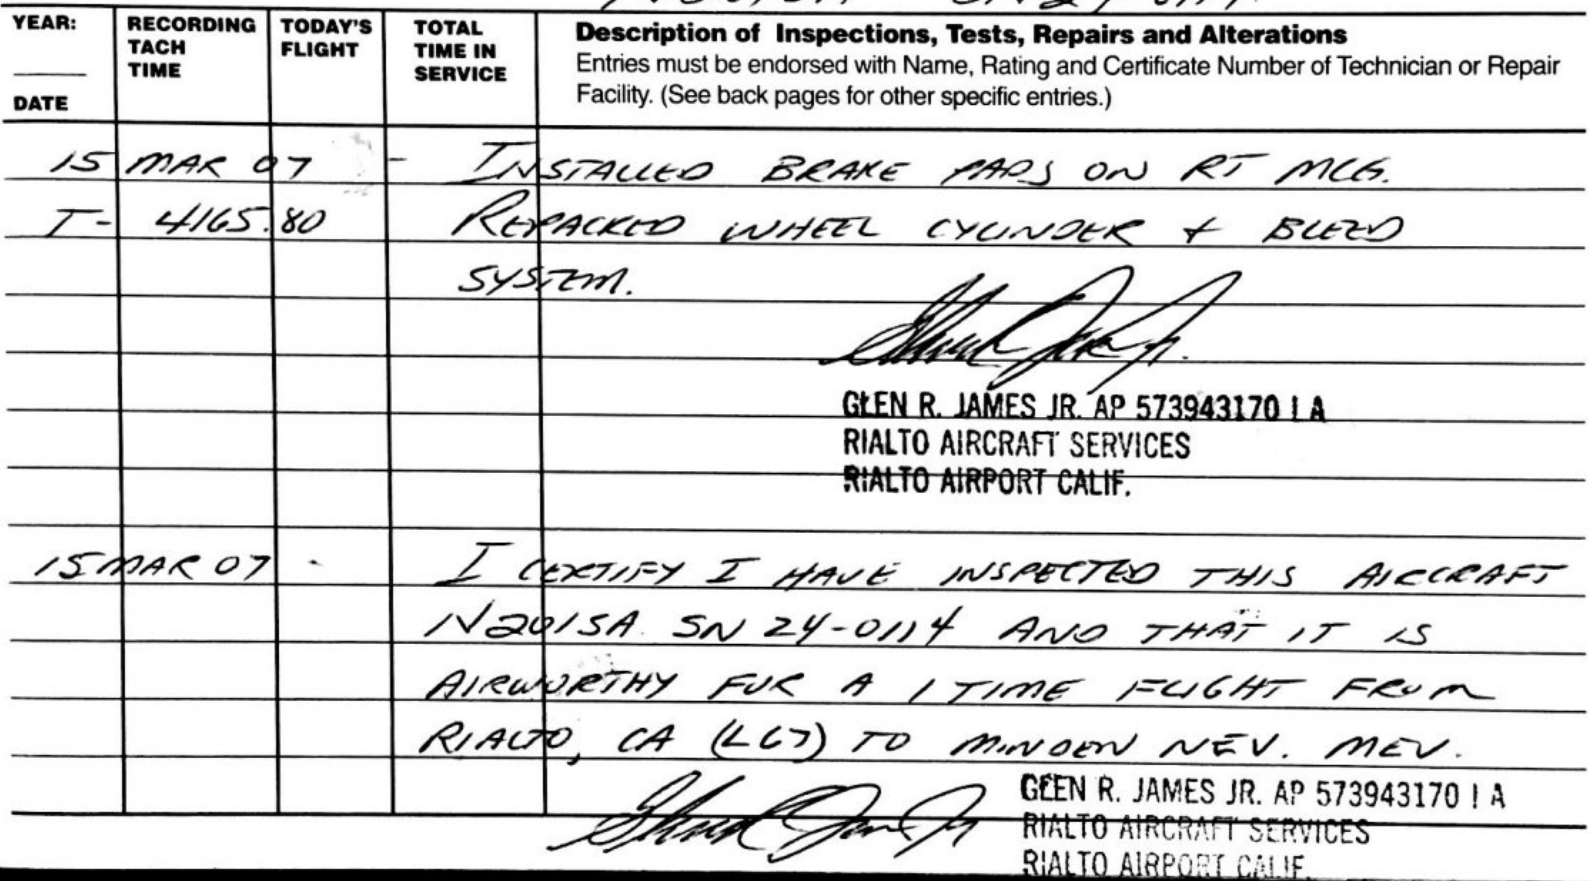 YEAR:
DATE
RECORDING
TACH
TIME
TODAY'S
FLIGHT
TOTAL
TIME IN
SERVICE
Description of Inspections, Tests, Repairs and Alterations
Entries must be endorsed with Name, Rating and Certificate Number of Technician or Repair
Facility. (See back pages for other specific entries.)
15 MAR 07 - INSTALLED BRAKE PADS ON RT MLG.
T- 4165.80 REPACKED WHEEL CYLINDER + BLEED
SYSTEM.
GLEN R. JAMES JR. AP 573943170 I A
RIALTO AIRCRAFT SERVICES
RIALTO AIRPORT CALIF.
15 MAR 07 - I CERTIFY I HAVE INSPECTED THIS AIRCRAFT
N201SA SN 24-0114 AND THAT IT IS
AIRWORTHY FOR A 1 TIME FLIGHT FROM
RIALTO, CA (L67) TO MINDEN NEV. MEV.
GLEN R. JAMES JR. AP 573943170 I A
RIALTO AIRCRAFT SERVICES
RIALTO AIRPORT CALIF.